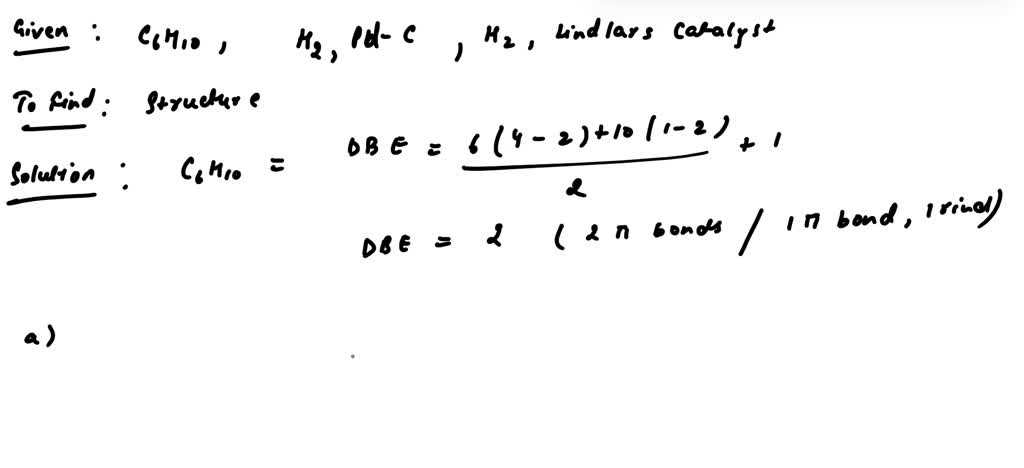 Given : C6H10 , H2, Pd-C , H2, Lindlars Catalyst
To find : Structure
Solution : C6H10 = DBE = 6(4-2)+10(1-2) / 2 + 1
DBE = 2 ( 2 π bonds / 1 π bond, 1 ring)
a)